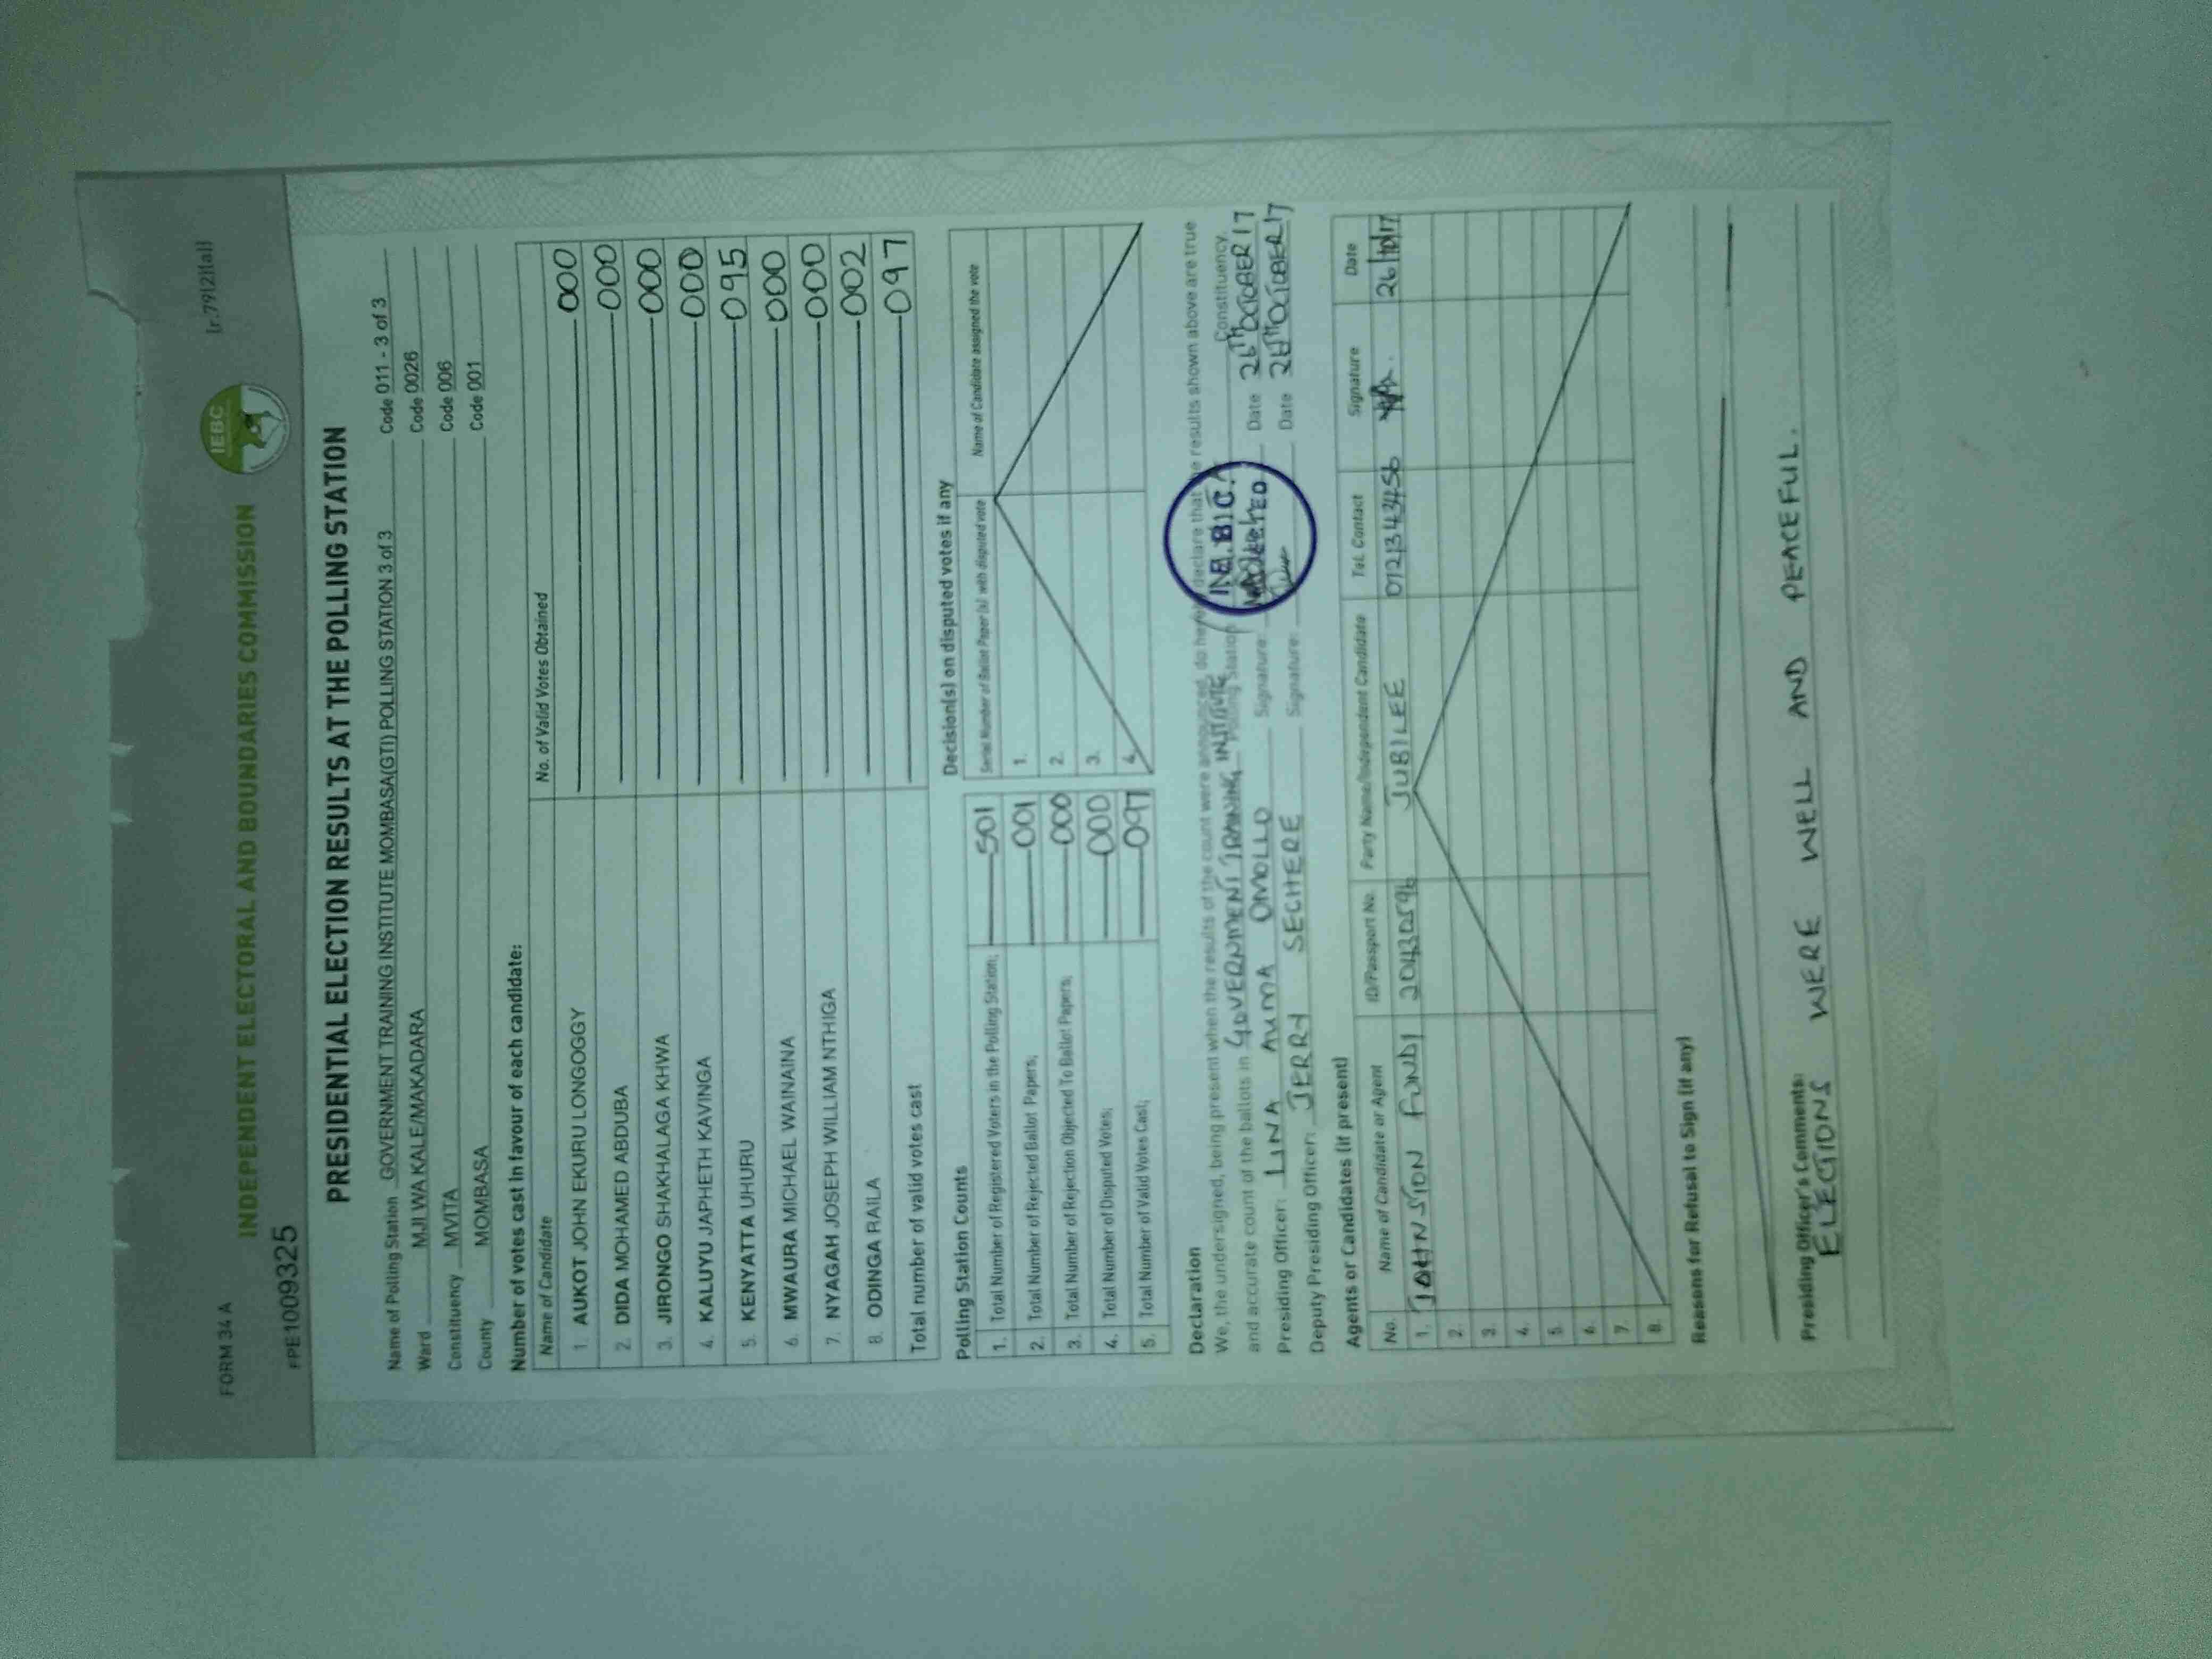 FORM 34 A
[r.79(2)(a)]
INDEPENDENT ELECTORAL AND BOUNDARIES COMMISSION
IEBC
FPE1009325
PRESIDENTIAL ELECTION RESULTS AT THE POLLING STATION
Name of Polling Station GOVERNMENT TRAINING INSTITUTE MOMBASA(GTI) POLLING STATION 3 of 3 Code 011 - 3 of 3
Ward MJI WA KALE/MAKADARA Code 0026
Constituency MVITA Code 006
County MOMBASA Code 001
Number of votes cast in favour of each candidate:
Name of Candidate No. of Valid Votes Obtained
1. AUKOT JOHN EKURU LONGOGGY 000
2. DIDA MOHAMED ABDUBA 000
3. JIRONGO SHAKHALAGA KHWA 000
4. KALUYU JAPHETH KAVINGA 000
5. KENYATTA UHURU 095
6. MWAURA MICHAEL WAINAINA 000
7. NYAGAH JOSEPH WILLIAM NTHIGA 000
8. ODINGA RAILA 002
Total number of valid votes cast 097
Polling Station Counts
1. Total Number of Registered Voters in the Polling Station; 501
2. Total Number of Rejected Ballot Papers; 001
3. Total Number of Rejection Objected To Ballot Papers; 000
4. Total Number of Disputed Votes; 000
5. Total Number of Valid Votes Cast; 097
Decision(s) on disputed votes if any
Serial Number of Ballot Paper (s) with disputed vote Name of Candidate assigned the vote
1.
2.
3.
4.
Declaration
We, the undersigned, being present when the results of the count were announced, do hereby declare that the results shown above are true
and accurate count of the ballots in GOVERNMENT TRAINING INTITUTE Polling Station Constituency.
Presiding Officer: LINA AUMA OMOLLO Signature: Date 26TH OCTOBER 17
Deputy Presiding Officer: JERRY SECHERE Signature: Date OCTOBER 17
Agents or Candidates (if present)
No. Name of Candidate or Agent ID/Passport No. Party Name/Independent Candidate Tel. Contact Signature Date
1. JOHNSTON FUNDI JUBILEE 26/10/17
2.
3.
4.
5.
6.
7.
8.
Reasons for Refusal to Sign (if any)
Presiding Officer's Comments:
ELECTIONS WERE WELL AND PEACEFUL.